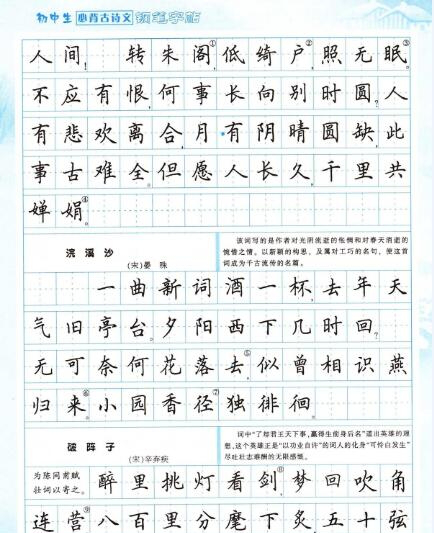 初中生 必背古诗文 钢笔字帖
人间!转朱阁①,低绮户②,照无眠③。
不应有恨,何事长向别时圆?人
有悲欢离合,月有阴晴圆缺,此
事古难全。但愿人长久,千里共
婵娟④。
浣溪沙
(宋)晏殊
该词写的是作者对光阴流逝的怅惘和对春天消逝的
惋惜之情。以新颖的构思,及属对工巧的名句,使这首
词成为千古流传的名篇。
一曲新词酒一杯,去年天
气旧亭台。夕阳西下几时回?
无可奈何花落去⑤,似曾相识燕
归来⑥。小园香径⑦独徘徊。
破阵子
(宋)辛弃疾
词中“了却君王天下事,赢得生前身后名”道出英雄的理
想,这个英雄正是“以功业自许”的词人的化身“可怜白发生”
尽吐壮志难酬的无限感慨。
为陈同甫赋
壮词以寄之。
醉里挑灯看剑⑧,梦回吹角
连营⑨。八百里分麾下炙,五十弦